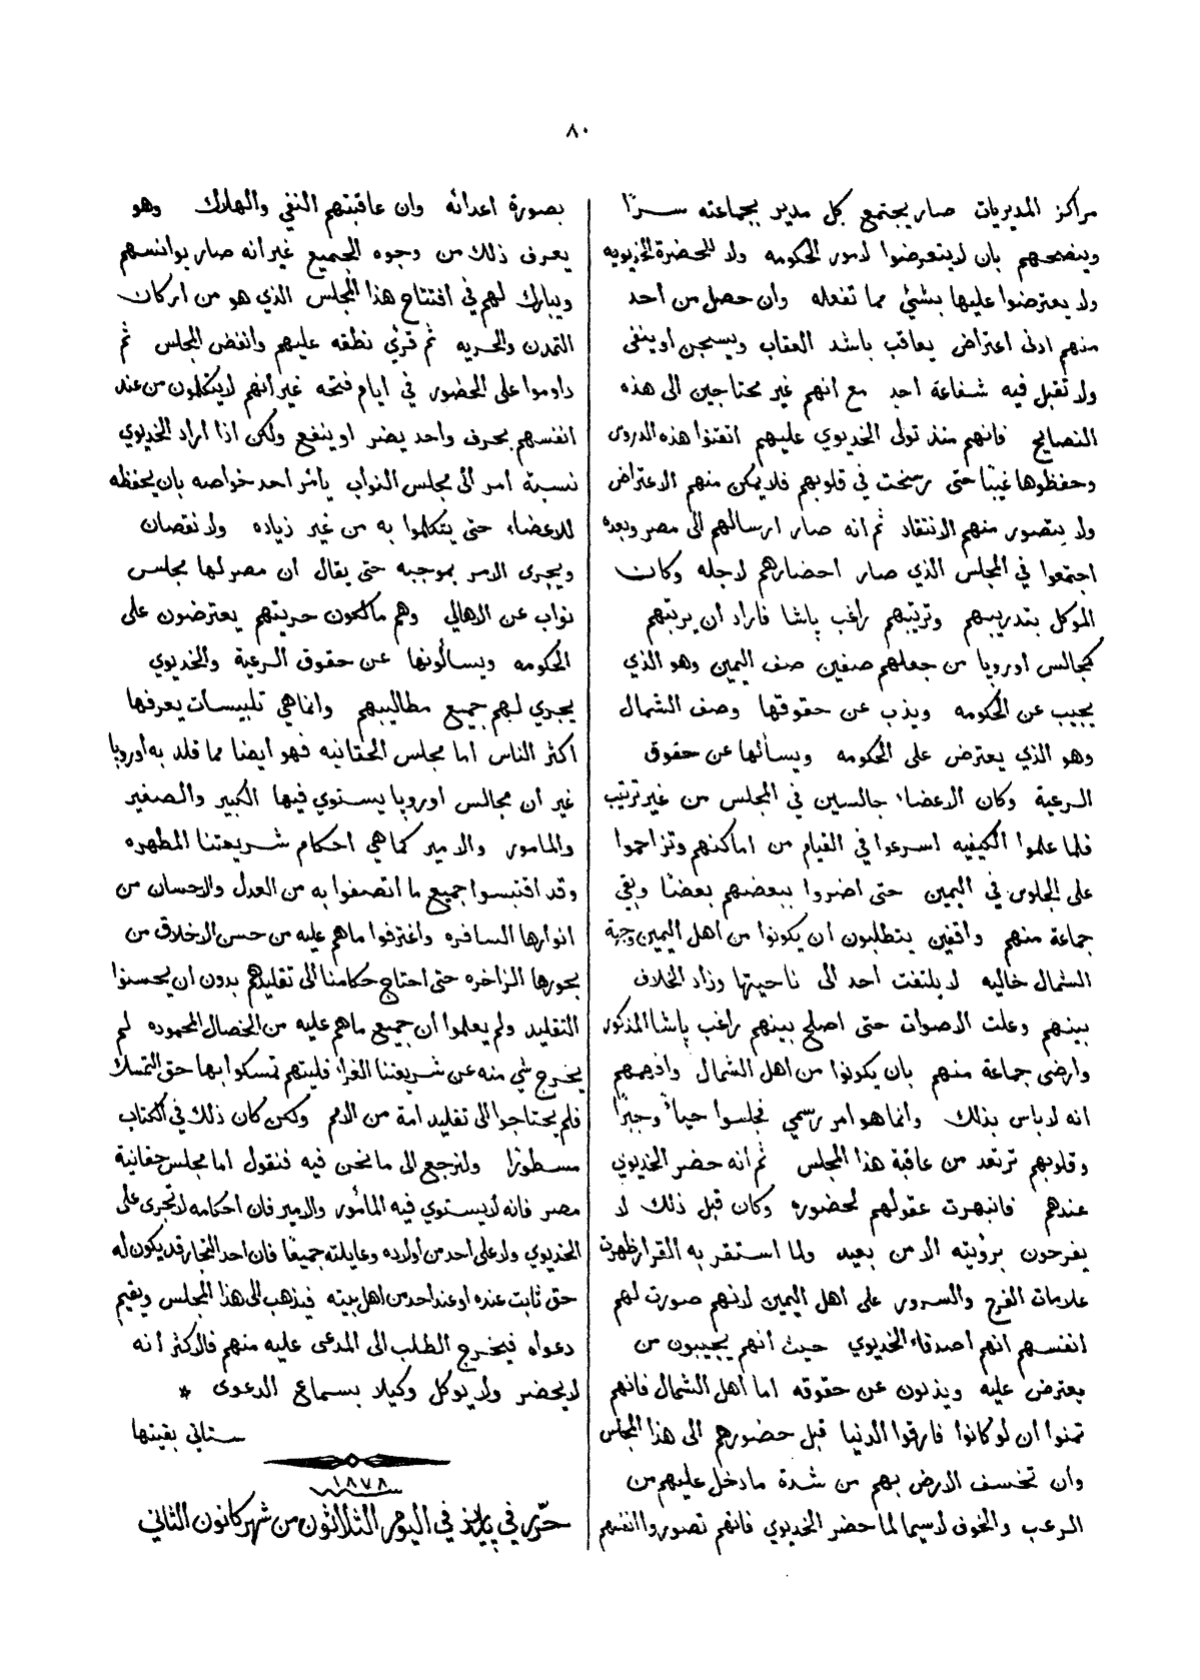 ٨٠
مراكز المديريات صار يجتمع كل مدير بجماعته سرًا
وينصحهم بان لا يتعرضوا لامور الحكومه ولا للحضرة الخديويه
ولا يعترضوا عليها بشئي مما تفعله وان حصل من احد
منهم ادنى اعتراض يعاقب باشد العقاب ويسجن او ينفى
ولا تقبل فيه شفاعة احد مع انهم غير محتاجين الى هذه
النصايح فانهم منذ تولى الخديوي عليهم اتقنوا هذه الدروس
وحفظوها غيبًا حتى رسخت في قلوبهم فلا يمكن منهم الاعتراض
ولا يتصور منهم الانتقاد ثم انه صار ارسالهم الى مصر وبعده
اجتمعوا في المجلس الذي صار احضارهم لاجله وكان
الموكل بتدريبهم وترتيبهم راغب پاشا فاراد أن يرتبهم
كمجالس اوروپا من جعلهم صفين صف اليمين وهو الذي
يجيب عن الحكومه ويذب عن حقوقها وصف الشمال
وهو الذي يعترض على الحكومه ويسألها عن حقوق
الرعية وكان الاعضاء جالسين في المجلس من غير ترتيب
فلما علموا الكيفيه اسرعوا في القيام من اماكنهم وتزاحموا
على الجلوس في اليمين حتى اضروا ببعضهم بعضًا وبقي
جماعة منهم واقفين يتطلبون ان يكونوا من اهل اليمين وجهة
الشمال خاليه لا يلتفت احد الى ناحيتها وزاد الخلاف
بينهم وعلت الاصوات حتى اصلح بينهم راغب پاشا المذكور
وارضى جماعة منهم بان يكونوا من اهل الشمال وافهمهم
انه لا باس بذلك وانما هو امر رسمي فجلسوا حياءً وجبرًا
وقلوبهم ترتعد من عاقبة هذا المجلس ثم انه حضر الخديوي
عندهم فانبهرت عقولهم لحضوره وكان قبل ذلك لا
يفرحون برؤيته الا من بعيد ولما استقر به القرار ظهرت
علامات الفرح والسرور على اهل اليمين لانهم صورت لهم
انفسهم انهم اصدقاء الخديوي حيث أنهم يجيبون من
يعترض عليه ويذبون عن حقوقه اما اهل الشمال فانهم
تمنوا ان لو كانوا فارقوا الدنيا قبل حضورهم الى هذا المجلس
وأن تخسف الارض بهم من شدة ما دخل عليهم من
الرعب والخوف لاسيما لما حضر الخديوي فانهم تصوروا انفسهم
بصورة اعدائه وان عاقبتهم النفي والهلاك وهو
يعرف ذلك من وجوه الجميع غير أنه صار يوانسهم
ويبارك لهم في افتتاح هذا المجلس الذي هو من اركان
التمدن والحريه ثم قرئ نطقه عليهم وانفض المجلس ثم
داوموا على الحضور في ايام فتحه غير أنهم لا يتكلمون من عند
انفسهم بحرف واحد يضر او ينفع ولكن اذا اراد الخديوي
نسبة امر الى مجلس النواب يأمر احد خواصه بان يحفظه
للاعضاء حتى يتكلموا به من غير زياده ولا نقصان
ويجرى الامر بموجبه حتى يقال ان مصر لها مجلس
نواب عن الاهالي وهم مالكون حريتهم يعترضون على
الحكومه ويسألونها عن حقوق الرعية والخديوي
يجري لهم جميع مطاليبهم وانما هي تلبيسات يعرفها
اكثر الناس اما مجلس الحقانيه فهو ايضا مما قلد به أوروپا
غير أن مجالس اوروپا يستوي فيها الكبير والصغير
والمامور والامير كما هي احكام شريعتنا المطهره
وقد اقتبسوا جميع ما اتصفوا به من العدل والاحسان من
انوارها السافره واغترفوا ما هم عليه من حسن الاخلاق من
بحورها الزاخره حتى احتاج حكامنا الى تقليدهم بدون ان يحسنوا
التقليد ولم يعلموا أن جميع ما هم عليه من الخصال المحموده لم
يخرج شي منه عن شريعتنا الغراء فليتهم تمسكوا بها حق التمسك
فلم يحتاجوا الى تقليد امة من الامم ولكن كان ذلك في الكتاب
مسطورًا ولنرجع الى ما نحن فيه فنقول اما مجلس حقانية
مصر فانه لا يستوي فيه المأمور والامير فان احكامه لا تجرى على
الخديوي ولا على احد من أولاده وعايلته جميعًا فان احد التجار قد يكون له
حق ثابت عنده او عند احد من اهل بيته فيذهب الى هذا المجلس ويقيم
دعواه فيخرج الطلب الى المدعى عليه منهم فالاكثر أنه
لا يحضر ولا يوكل وكيلا بسماع الدعوى *
ستاتي بقيتها
١٨٧٨
حرّر في پاريز في اليوم الثلاثون من شهر كانون الثاني